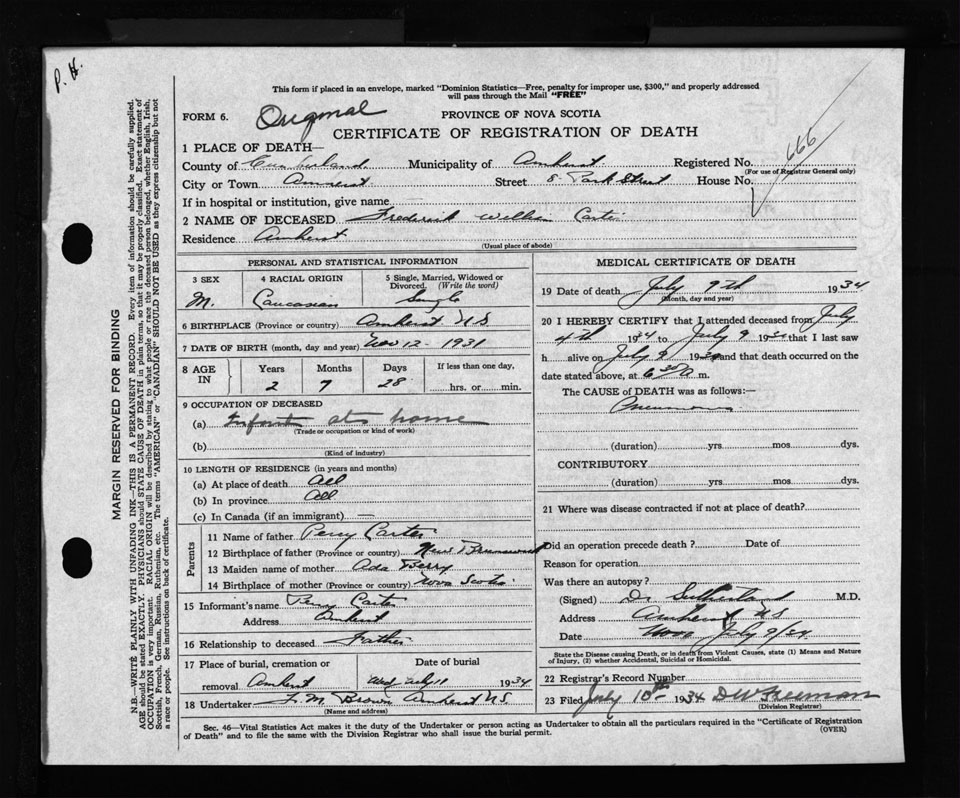 P. H.
This form if placed in an envelope, marked "Dominion Statistics—Free, penalty for improper use, $300," and properly addressed
will pass through the Mail "FREE"
FORM 6. Original PROVINCE OF NOVA SCOTIA
CERTIFICATE OF REGISTRATION OF DEATH
666
1 PLACE OF DEATH—
County of Cumberland Municipality of Amherst Registered No.
(For use of Registrar General only)
City or Town Amherst Street 8 Park Street House No.
If in hospital or institution, give name
2 NAME OF DECEASED Frederick William Carter
Residence Amherst
(Usual place of abode)
PERSONAL AND STATISTICAL INFORMATION
3 SEX 4 RACIAL ORIGIN 5 Single, Married, Widowed or
Divorced. (Write the word)
M. Caucasian Single
6 BIRTHPLACE (Province or country) Amherst NS
7 DATE OF BIRTH (month, day and year) Nov 12 - 1931
8 AGE IN Years Months Days If less than one day,
2 7 28 hrs. or min.
9 OCCUPATION OF DECEASED
(a) Infant at home
(Trade or occupation or kind of work)
(b)
(Kind of industry)
10 LENGTH OF RESIDENCE (in years and months)
(a) At place of death All
(b) In province All
(c) In Canada (if an immigrant) —
Parents
11 Name of father Percy Carter
12 Birthplace of father (Province or country) New Brunswick
13 Maiden name of mother Ada Berry
14 Birthplace of mother (Province or country) Nova Scotia
15 Informant's name Percy Carter
Address Amherst
16 Relationship to deceased Father
17 Place of burial, cremation or Date of burial
removal Amherst Wed July 11 1934
18 Undertaker F. M. Brown Amherst N.S.
(Name and address)
MEDICAL CERTIFICATE OF DEATH
19 Date of death July 9th 1934
(Month, day and year)
20 I HEREBY CERTIFY that I attended deceased from July
4th 1934 to July 9 1934 that I last saw
h alive on July 9 1934 and that death occurred on the
date stated above, at 6 30 m.
The CAUSE of DEATH was as follows:—
Pneumonia
(duration) yrs mos dys.
CONTRIBUTORY
(duration) yrs mos dys.
21 Where was disease contracted if not at place of death?
Did an operation precede death? Date of
Reason for operation
Was there an autopsy?
(Signed) Dr Sutherland M.D.
Address Amherst NS
Date July 9/34
State the Disease causing Death, or in death from Violent Causes, state (1) Means and Nature
of Injury, (2) whether Accidental, Suicidal or Homicidal.
22 Registrar's Record Number
23 Filed July 10th 1934 DW Freeman
(Division Registrar)
Sec. 46—Vital Statistics Act makes it the duty of the Undertaker or person acting as Undertaker to obtain all the particulars required in the "Certificate of Registration
of Death" and to file the same with the Division Registrar who shall issue the burial permit.
(OVER)
MARGIN RESERVED FOR BINDING
N.B.—WRITE PLAINLY WITH UNFADING INK—THIS IS A PERMANENT RECORD. Every item of information should be carefully supplied.
AGE should be stated EXACTLY. PHYSICIANS should STATE CAUSE OF DEATH in plain terms, so that it may be properly classified. Exact statement of
OCCUPATION is very important. RACIAL ORIGIN will be described by stating to what people or race the deceased person belonged, whether English, Irish,
Scottish, French, German, Russian, Ruthenian, etc. The terms "AMERICAN" or "CANADIAN" SHOULD NOT BE USED as they express citizenship but not
a race or people. See instructions on back of certificate.